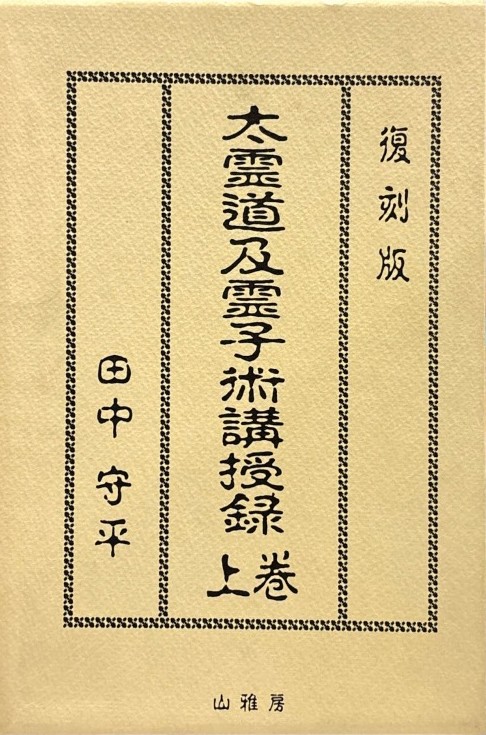 復刻版
太霊道及霊子術講授録
上巻
田中守平
山雅房